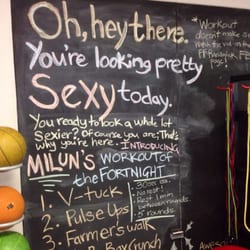 Oh, hey there.
You're looking pretty
Sexy today.
You ready to look a whole lot
sexier? Of course you are; That's
why you're here. INTRODUCING
MILUN'S WORKOUT of
the FORTNIGHT
1. V-tuck
2. Pulse Ups
3. Farmer's walk
Box Crunch
30 sec ea.
No rest!
Rest 1 min
between rounds.
5 rounds
*Workout
does not make
page!